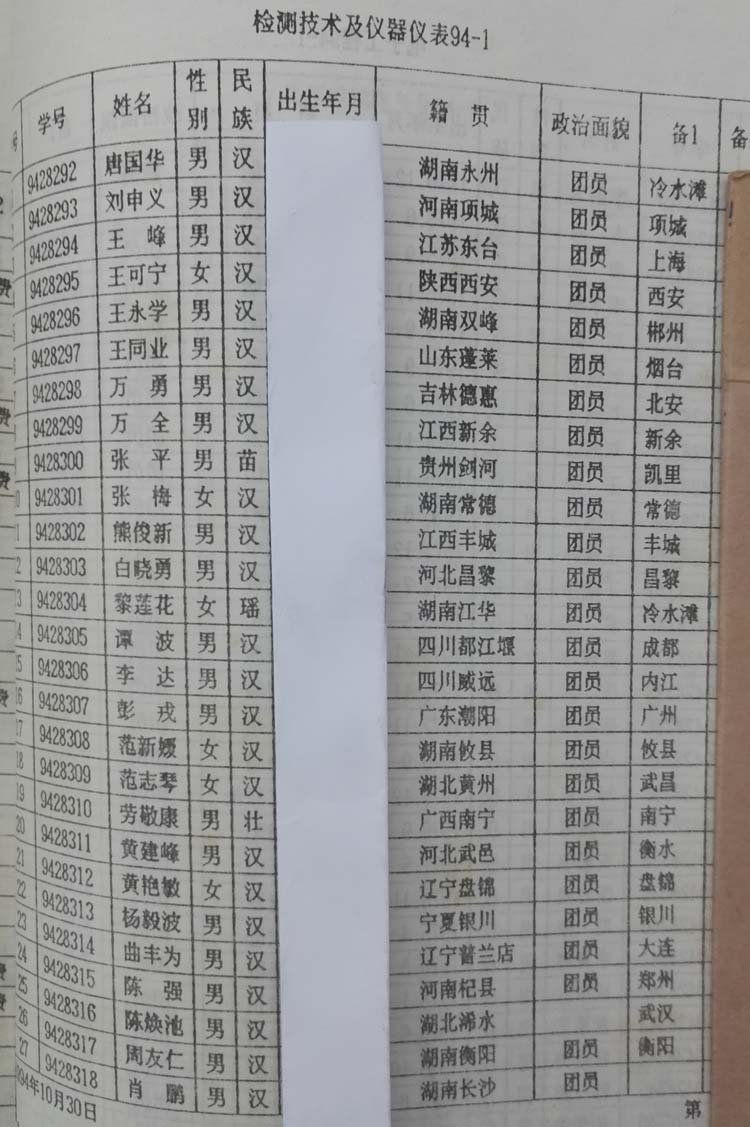 检测技术及仪器仪表94-1
学号 姓名 性别 民族 出生年月 籍贯 政治面貌 备1 备
9428292 唐国华 男 汉 湖南永州 团员 冷水滩
9428293 刘申义 男 汉 河南项城 团员 项城
9428294 王峰 男 汉 江苏东台 团员 上海
9428295 王可宁 女 汉 陕西西安 团员 西安
9428296 王永学 男 汉 湖南双峰 团员 郴州
9428297 王同业 男 汉 山东蓬莱 团员 烟台
9428298 万勇 男 汉 吉林德惠 团员 北安
9428299 万全 男 汉 江西新余 团员 新余
9428300 张平 男 苗 贵州剑河 团员 凯里
9428301 张梅 女 汉 湖南常德 团员 常德
9428302 熊俊新 男 汉 江西丰城 团员 丰城
9428303 白晓勇 男 汉 河北昌黎 团员 昌黎
9428304 黎莲花 女 瑶 湖南江华 团员 冷水滩
9428305 谭波 男 汉 四川都江堰 团员 成都
15 9428306 李达 男 汉 四川威远 团员 内江
16 9428307 彭戎 男 汉 广东潮阳 团员 广州
17 9428308 范新嫒 女 汉 湖南攸县 团员 攸县
18 9428309 范志琴 女 汉 湖北黄州 团员 武昌
19 9428310 劳敬康 男 壮 广西南宁 团员 南宁
20 9428311 黄建峰 男 汉 河北武邑 团员 衡水
21 9428312 黄艳敏 女 汉 辽宁盘锦 团员 盘锦
22 9428313 杨毅波 男 汉 宁夏银川 团员 银川
23 9428314 曲丰为 男 汉 辽宁普兰店 团员 大连
24 9428315 陈强 男 汉 河南杞县 团员 郑州
25 9428316 陈焕池 男 汉 湖北浠水 武汉
26 9428317 周友仁 男 汉 湖南衡阳 团员 衡阳
27 9428318 肖鹏 男 汉 湖南长沙 团员
994年10月30日 第